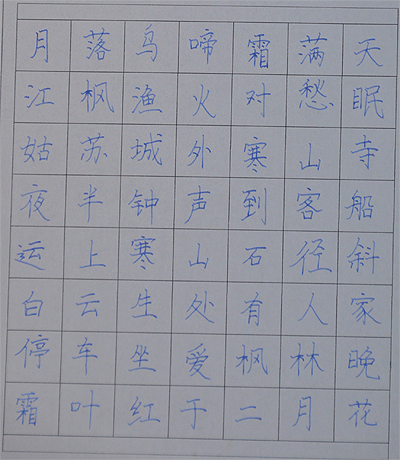 月落乌啼霜满天
江枫渔火对愁眠
姑苏城外寒山寺
夜半钟声到客船
运上寒山石径斜
白云生处有人家
停车坐爱枫林晚
霜叶红于二月花